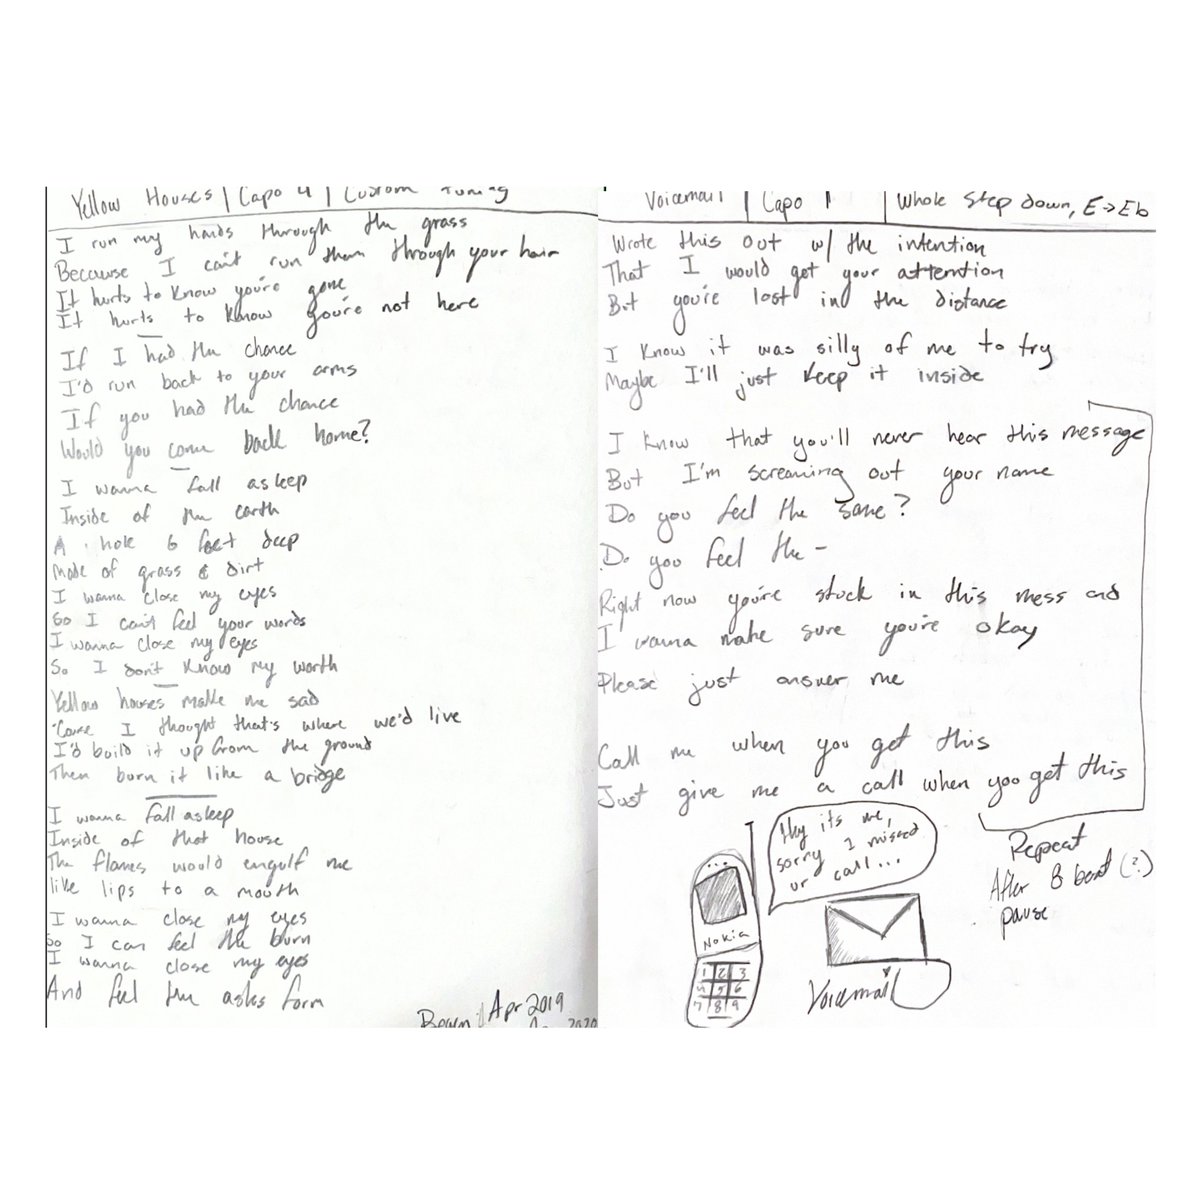 Yellow Houses | Capo 4 | Custom Tuning
I run my hands through the grass
Because I can't run them through your hair
It hurts to know you're gone
It hurts to know you're not here
If I had the chance
I'd run back to your arms
If you had the chance
Would you come back home?
I wanna fall asleep
Inside of the earth
A hole 6 feet deep
Made of grass & dirt
I wanna close my eyes
So I can't feel your words
I wanna close my eyes
So I don't know my worth
Yellow houses make me sad
'Cause I thought that's where we'd live
I'd build it up from the ground
Then burn it like a bridge
I wanna fall asleep
Inside of that house
The flames would engulf me
like lips to a mouth
I wanna close my eyes
So I can feel the burn
I wanna close my eyes
And feel the ashs form
Apr 2019
2020
Voicemail | Capo 1 | Whole Step down, E→Eb
Wrote this out w/ the intention
That I would get your attention
But you're lost in the distance
I know it was silly of me to try
Maybe I'll just keep it inside
I know that you'll never hear this message
But I'm screaming out your name
Do you feel the same?
Do you feel the -
Right now you're stuck in this mess and
I wanna make sure you're okay
Please just answer me
Call me when you get this
Just give me a call when you get this
Repeat
After 8 beat (?)
pause
Hey its me,
sorry I missed
ur call...
Nokia
1 2 3
5 6
7 8 9
Voicemail